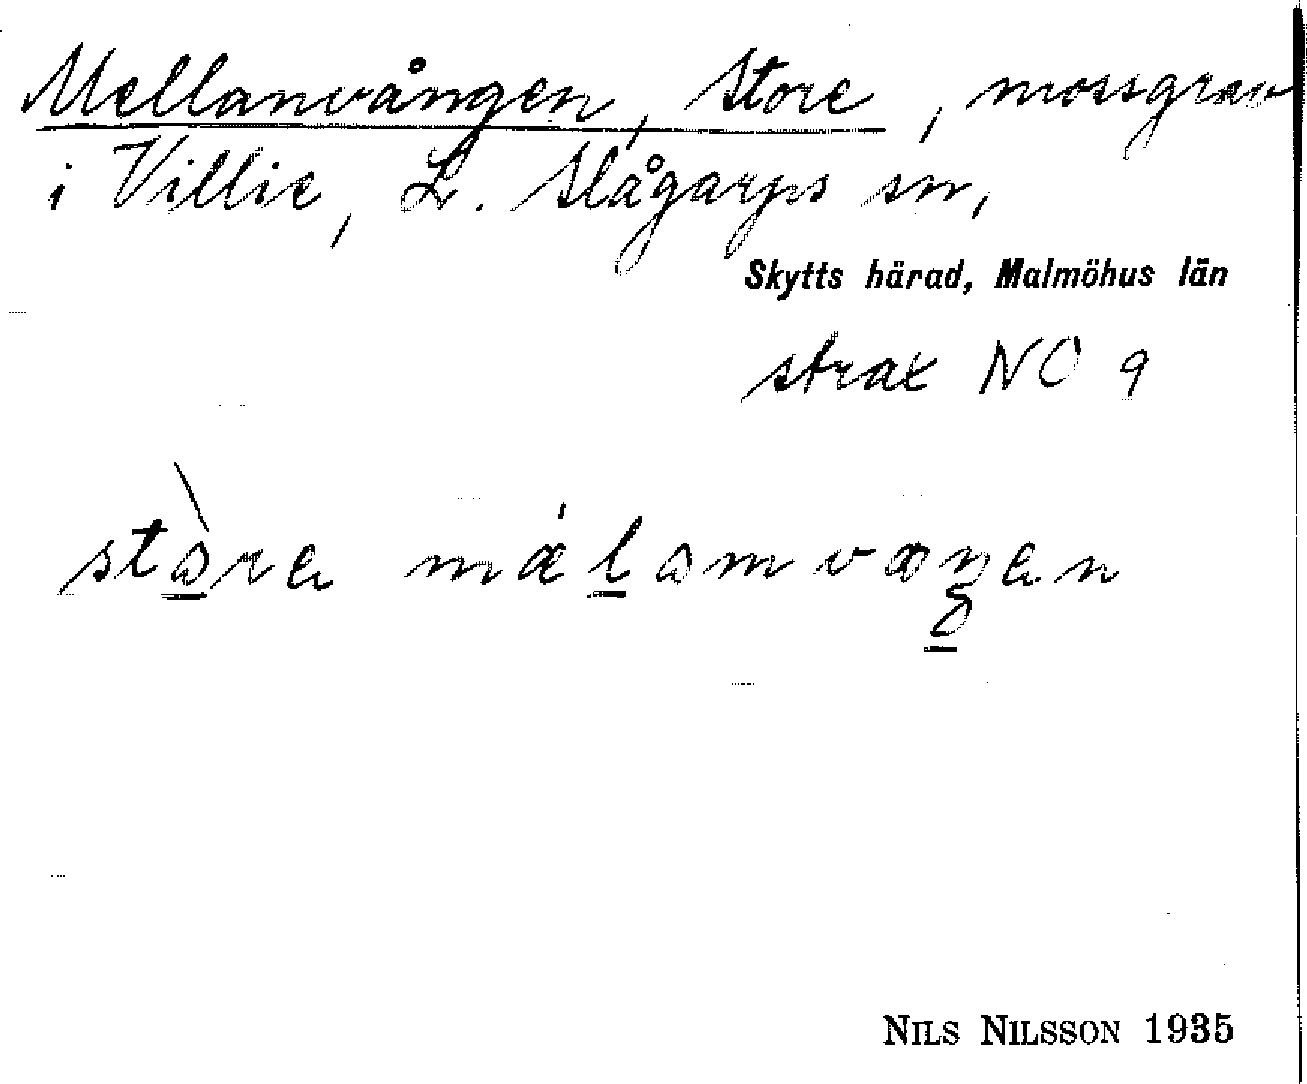 Mellanvången, Store, mossgrav
i Villie, L. Slågarps sn,
Skytts härad, Malmöhus län
strax NO 9
NILS NILSSON 1935